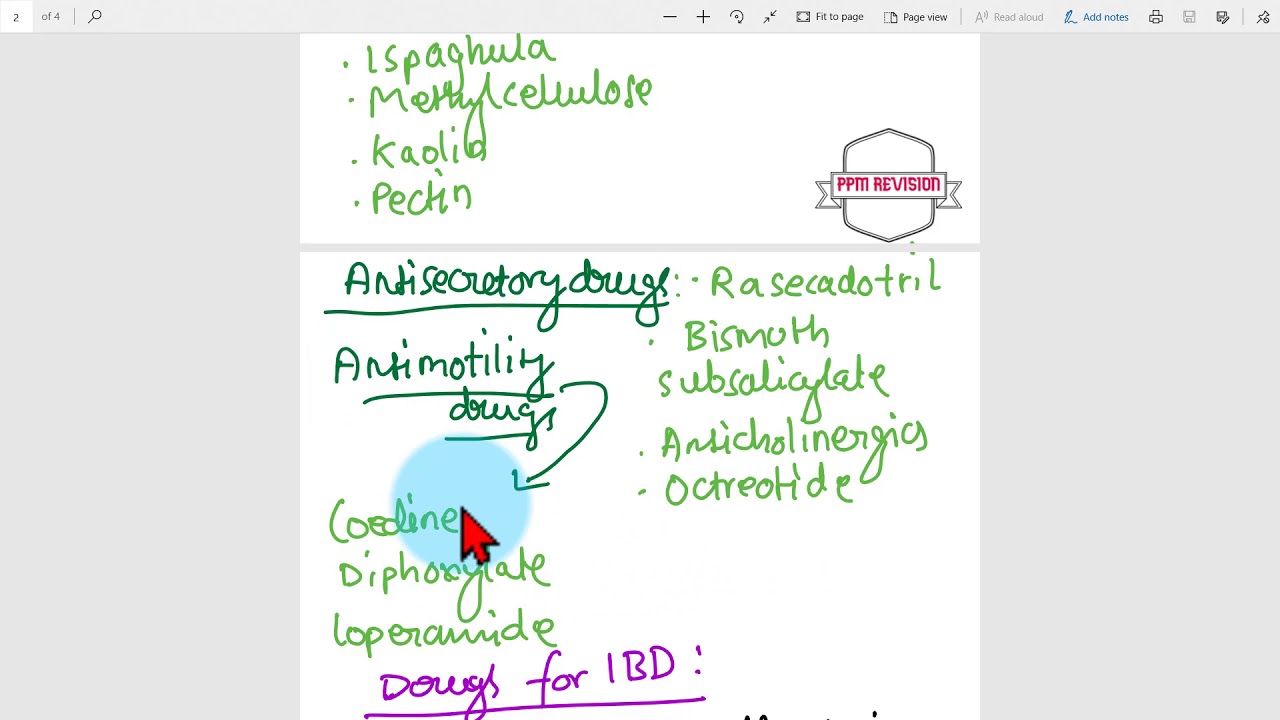 2 of 4 Fit to page Page view Read aloud Add notes
· Ispaghula
· Methylcellulose
· Kaolin
· Pectin
PPM REVISION
Antisecretory drugs : · Rasecadotril
Antimotility
drugs
· Bismuth
subsalicylate
· Anticholinergics
· Octreotide
Coedine
Diphoxylate
loperamide
Drugs for IBD :